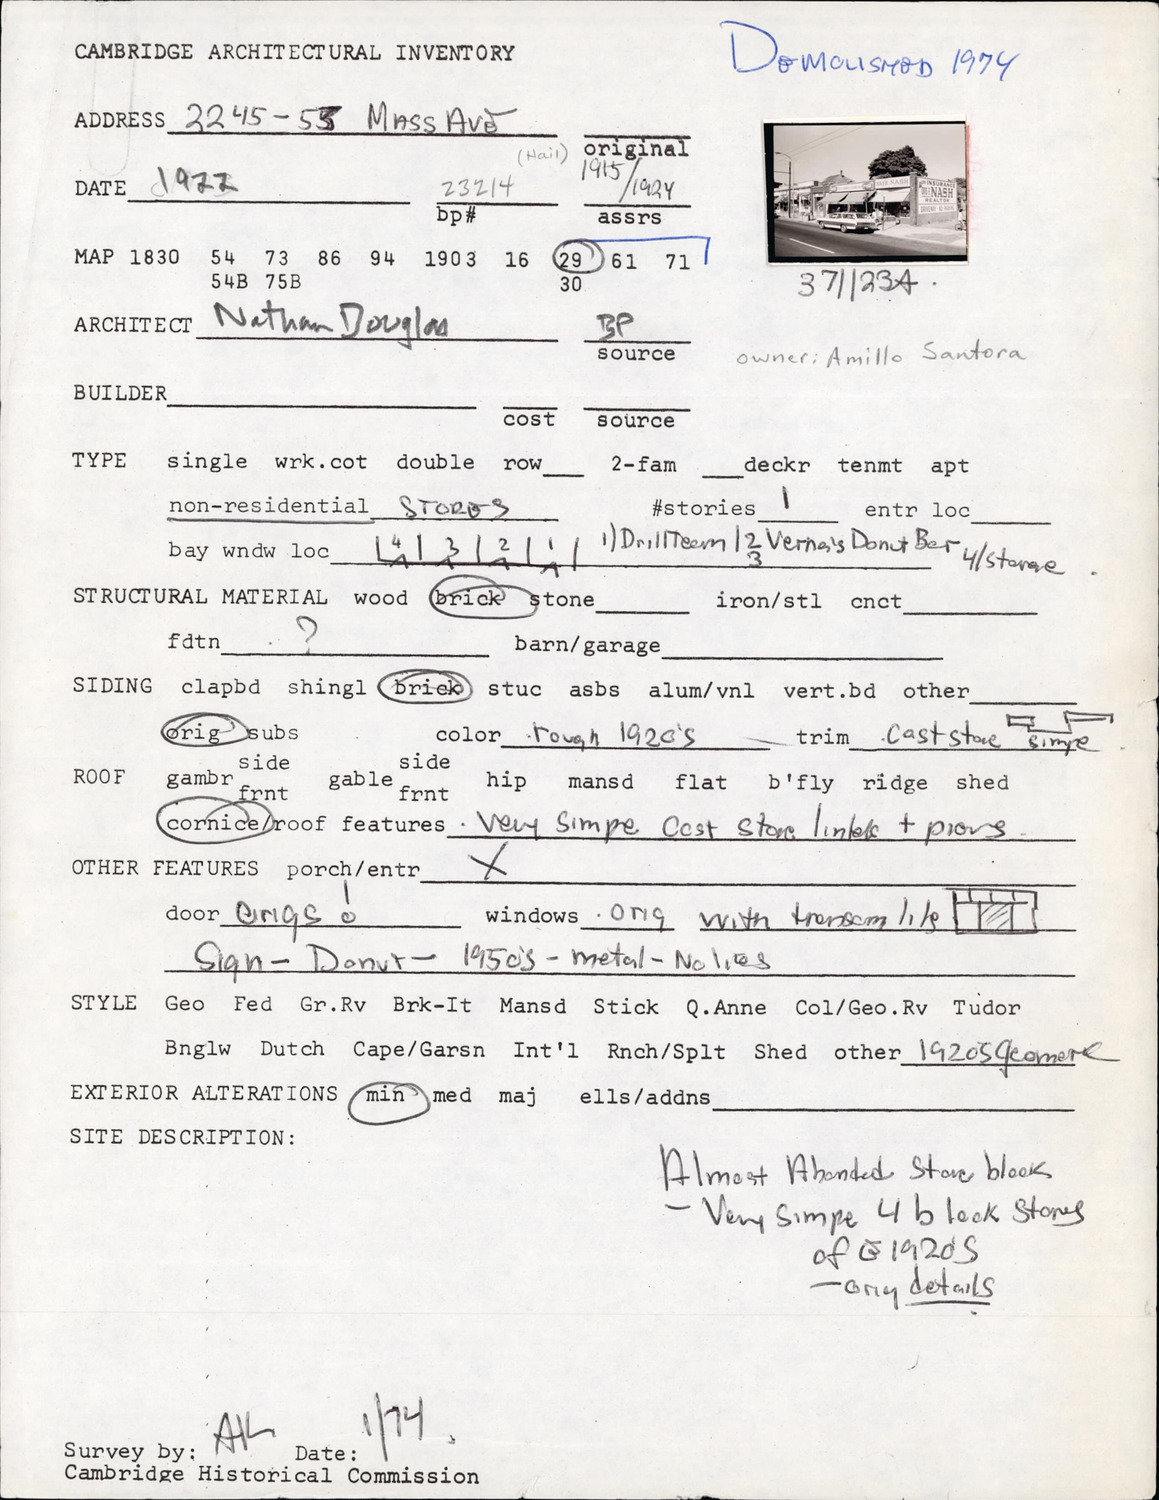 CAMBRIDGE ARCHITECTURAL INVENTORY
DEMOLISHED 1974
ADDRESS 2245-55 MASS AVE
(Hail) original
DATE 1922 23214 1915/1924
bp# assrs
INSURANCE
NASH
REALTOR
MAP 1830 54 73 86 94 1903 16 29 61 71
54B 75B 30
37//23A
ARCHITECT Nathan Douglas BP
source
owner: Amillo Santora
BUILDER
cost source
TYPE single wrk.cot double row 2-fam deckr tenmt apt
non-residential STORES #stories 1 entr loc
bay wndw loc 4 3 2 1 1) Drill Team / 2/3 Verna's Donut Bar 4/storage
STRUCTURAL MATERIAL wood brick stone iron/stl cnct
fdtn ? barn/garage
SIDING clapbd shingl brick stuc asbs alum/vnl vert.bd other
orig subs color rough 1920's trim Cast stone simpe
ROOF gambr side frnt gable side frnt hip mansd flat b'fly ridge shed
cornice/roof features Very Simpe Cast Stone lintels +
OTHER FEATURES porch/entr X
door origs windows orig with transom lite
Sign - Donut - 1950's - metal - No lites
STYLE Geo Fed Gr.Rv Brk-It Mansd Stick Q.Anne Col/Geo.Rv Tudor
Bnglw Dutch Cape/Garsn Int'l Rnch/Splt Shed other 1920's
EXTERIOR ALTERATIONS min med maj ells/addns
SITE DESCRIPTION:
Almost Abonded Store block
- Very Simpe 4 block Stores
of 1920's
- orig details
Survey by: Date: 1/74
Cambridge Historical Commission